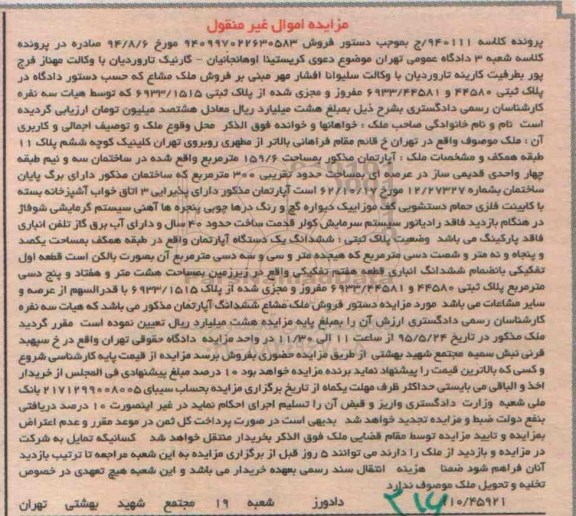 مزایده اموال غیر منقول
پرونده کلاسه ۹۴۰۱۱۱/ج بموجب دستور فروش ۹۴۰۹۹۷۰۲۲۶۳۰۵۸۳ مورخ ۹۴/۸/۶ صادره در پرونده
کلاسه شعبه ۳ دادگاه عمومی تهران موضوع دعوی کریستینا اوهانجانیان - گارنیک تاروردیان با وکالت مهناز فرج
پور بطرفیت کارینه تاروردیان با وکالت سلیوانا افشار مهر مبنی بر فروش ملک مشاع که حسب دستور دادگاه در
پلاک ثبتی ۴۴۵۸۰ و ۶۹۳۳/۴۴۵۸۱ مفروز و مجزی شده از پلاک ثبتی ۶۹۳۳/۱۵۱۵ که توسط هیات سه نفره
کارشناسان رسمی دادگستری بشرح ذیل بمبلغ هشت میلیارد ریال معادل هشتصد میلیون تومان ارزیابی گردیده
است نام و نام خانوادگی صاحب ملک : خواهانها و خوانده فوق الذکر محل وقوع ملک و توصیف اجمالی و کاربری
آن : ملک موصوف واقع در تهران خ قائم مقام فراهانی بالاتر از مطهری روبروی تهران کلینیک کوچه ششم پلاک ۱۱
طبقه همکف و مشخصات ملک : آپارتمان مذکور بمساحت ۱۵۹/۶ مترمربع واقع شده در ساختمان سه و نیم طبقه
چهار واحدی قدیمی ساز در عرصه ای بمساحت حدود تقریبی ۳۰۰ مترمربع که ساختمان مذکور دارای برگ پایان
ساختمان بشماره ۱۲/۲۷۳۲۷ مورخ ۶۲/۱۲/۱۷ است آپارتمان مذکور دارای پذیرایی ۳ اتاق خواب آشپزخانه بسته
با کابینت فلزی حمام دستشویی کف موزاییک دیواره گچ و رنگ درها چوبی پنجره ها آهنی سیستم گرمایشی شوفاژ
در هنگام بازدید فاقد رادیاتور سیستم سرمایش کولر قدمت ساخت حدود ۴۰ سال و دارای آب برق گاز تلفن انباری
فاقد پارکینگ می باشد وضعیت پلاک ثبتی : ششدانگ یک دستگاه آپارتمان واقع در طبقه همکف بمساحت یکصد
و پنجاه و نه متر و شصت دسی مترمربع که هیجده متر و سی و سه دسی مترمربع آن بصورت بالکن است قطعه اول
تفکیکی بانضمام ششدانگ انباری قطعه هفتم تفکیکی واقع در زیرزمین بمساحت هشت متر و هفتاد و پنج دسی
مترمربع پلاک ثبتی ۴۴۵۸۰ و ۶۹۳۳/۴۴۵۸۱ مفروز و مجزی شده از پلاک ۶۹۳۳/۱۵۱۵ با قدرالسهم از عرصه و
سایر مشاعات می باشد مورد مزایده دستور فروش ملک مشاع ششدانگ آپارتمان مذکور می باشد که هیات سه نفره
کارشناسان رسمی دادگستری ارزش آن را بمبلغ پایه مزایده هشت میلیارد ریال تعیین نموده است مقرر گردید
ملک مذکور در تاریخ ۹۵/۵/۲۴ از ساعت ۱۱ الی ۱۱/۳۰ در واحد مزایده دادگاه حقوقی تهران واقع در خ سپهبد
قرنی نبش سمیه مجتمع شهید بهشتی از طریق مزایده حضوری بفروش برسد مزایده از قیمت پایه کارشناسی شروع
و کسی که بالاترین قیمت را پیشنهاد نماید برنده مزایده خواهد بود ۱۰ درصد مبلغ پیشنهادی فی المجلس از خریدار
اخذ و الباقی می بایستی حداکثر ظرف مهلت یکماه از تاریخ برگزاری مزایده بحساب سیبای ۲۱۷۱۲۹۹۰۰۸۰۰۵ بانک
ملی شعبه وزارت دادگستری واریز و قبض آن را تسلیم اجرای احکام نماید در غیر اینصورت ۱۰ درصد دریافتی
بنفع دولت ضبط و مزایده تجدید خواهد شد بدیهی است در صورت پرداخت کل ثمن در موعد مقرر و عدم اعتراض
بمزایده و تایید مزایده توسط مقام قضایی ملک فوق الذکر بخریدار منتقل خواهد شد کسانیکه تمایل به شرکت
در مزایده و بازدید از ملک را دارند می توانند ۵ روز قبل از برگزاری مزایده به این شعبه مراجعه تا ترتیب بازدید
آنان فراهم شود ضمنا هزینه انتقال سند رسمی بعهده خریدار می باشد و این شعبه هیچ تعهدی در خصوص
تخلیه و تحویل ملک موصوف ندارد
۱۱۰/۴۵۹۲۱ دادورز شعبه ۱۹ مجتمع شهید بهشتی تهران